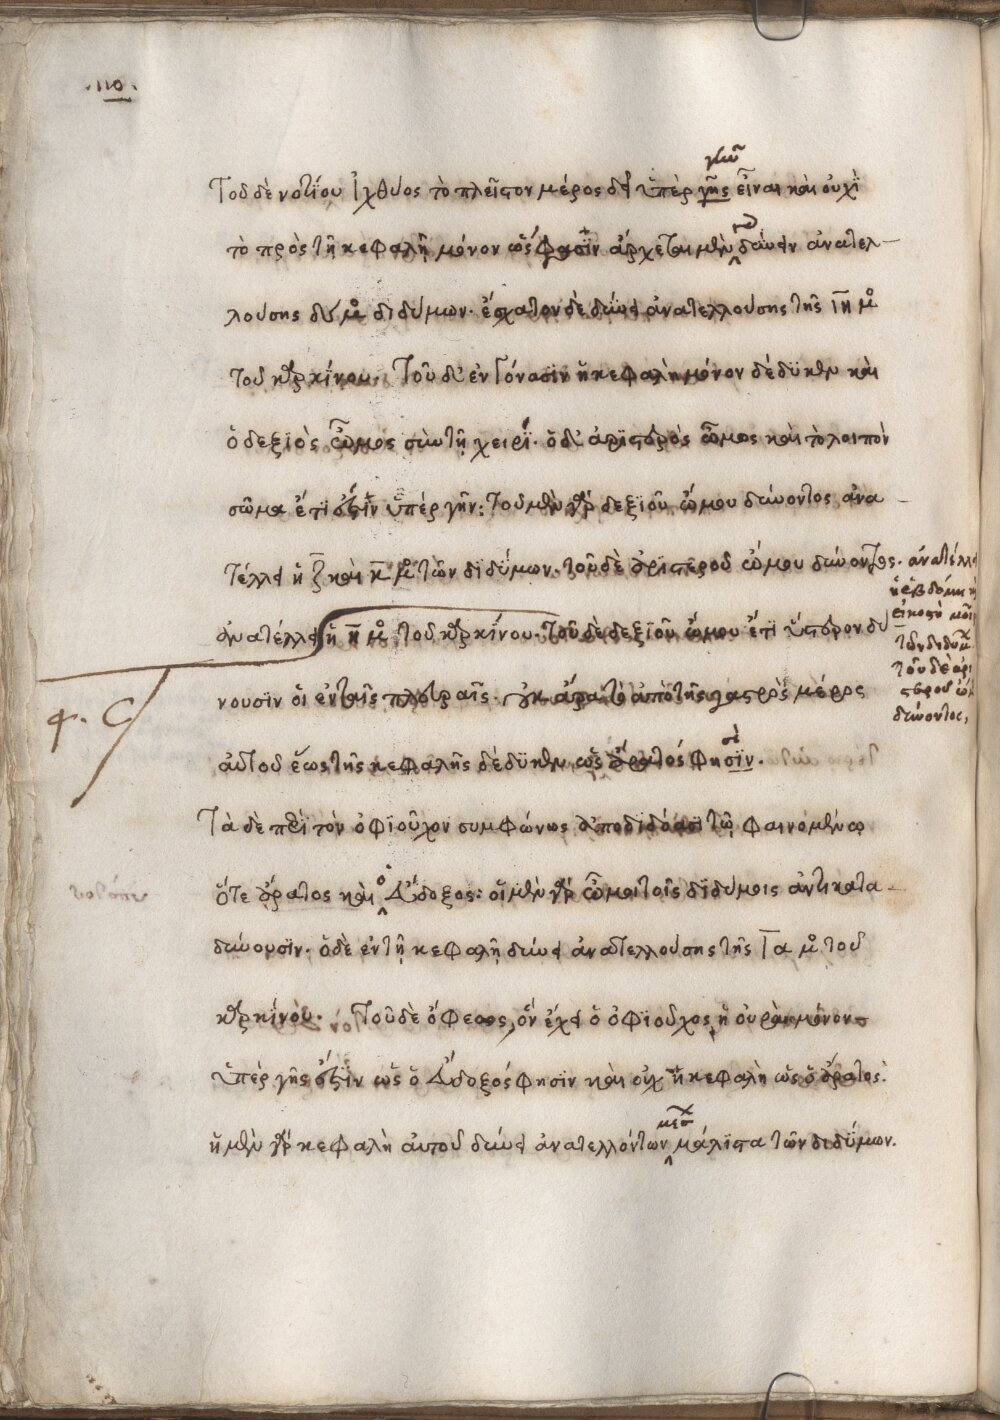 .110.
γεῶν
Τοῦ δὲ νοτίου Ἰχθύος τὸ πλεῖστον μέρος δεῖ ὑπὲρ γῆς εἶναι καὶ οὐχὶ
τὸ πρὸς τῇ κεφαλῇ μόνον ὥς φασιν ἄρχεται μὲν δύνειν ἀνατελ-
λούσης μ° διδύμων. ἔσχατον δὲ δύνει ἀνατελλούσης τῆς ιη μ°
τοῦ καρκίνου. Τοῦ δ' ἐν Γόνασιν ἡ κεφαλὴ μόνον δέδυκεν καὶ
ὁ δεξιὸς ὦμος σὺν τῇ χειρί. ὁ δ' ἀριστερὸς ὦμος καὶ τὸ λοιπὸν
σῶμα ἔτι ἐστὶν ὑπὲρ γῆν: τοῦ μὲν γὰρ δεξιοῦ ὤμου δύνοντος ἀνα-
τέλλει ἡ ζ καὶ κ μ° τῶν διδύμων. τοῦ δὲ ἀριστεροῦ ὤμου δύνοντος. ἀνατέλλει
ἡ ἑβδόμη κ
εἰκοστὴ μοῖ
τῶν διδυμ
τοῦ δὲ ἀρι
στεροῦ ὤμ
δύνοντος,
ἀνατέλλει ἡ η μ° τοῦ καρκίνου. τοῦ δὲ δεξιοῦ ὤμου ἔτι ὕστερον δύ-
νουσιν οἱ ἐν ταῖς πλευραῖς. οὐκ ἄρα τὸ ἀπὸ τῆς γαστρὸς μέρος
φ. C
αὐτοῦ ἕως τῆς κεφαλῆς δέδυκεν ὡς ἄρατός φησιν.
Τὰ δὲ περὶ τὸν ὀφιοῦχον συμφώνως ἀποδιδόασι τῷ φαινομένῳ
ὅτε ἄρατος καὶ ὁ Εὔδοξος: οἱ μὲν γὰρ ὦμοι τοῖς διδύμοις ἀντικατα-
δύνουσιν. ὁ δὲ ἐν τῇ κεφαλῇ δύνει ἀνατελλούσης τῆς Γα μ° τοῦ
καρκίνου. Τοῦ δὲ ὄφεος, ὃν ἔχει ὁ ὀφιοῦχος, ἡ οὐρὰ μόνον
ὑπὲρ γῆς ἐστὶν ὡς ὁ Εὔδοξός φησιν καὶ οὐχ ἡ κεφαλὴ ὡς ὁ ἄρατος.
μεσ
ἡ μὲν γὰρ κεφαλὴ αὐτοῦ δύνει ἀνατελλόντων μάλιστα τῶν διδύμων.